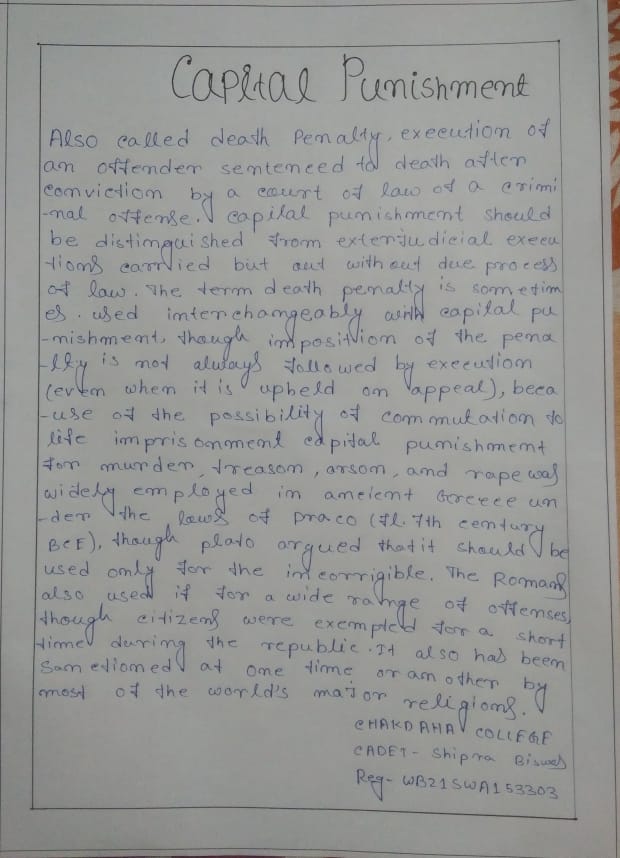 Capital Punishment
Also called death Penalty, execution of
an offender sentenced to death after
conviction by a court of law of a crimi
-nal offense. capital punishment should
be distinguished from extrajudicial execu
tions carried but out without due process
of law. The term death penalty is sometim
es. used interchangeably with capital pu
-nishment, though imposition of the pena
-lty is not always followed by execution
(even when it is upheld on appeal), beca
-use of the possibility of commutation to
life imprisonment capital punishment
for murder, treason, arson, and rape was
widely employed in ancient Greece un
-der the laws of Draco (fl. 7th century
BCE), though plato argued that it should be
used only for the incorrigible. The Romans
also used it for a wide range of offenses,
though citizens were exempted for a short
time during the republic. It also has been
Sanctioned at one time or another by
most of the world's major religions.
CHAKDAHA COLLEGE
CADET - Shipra Biswas
Reg- WB21SWA153303